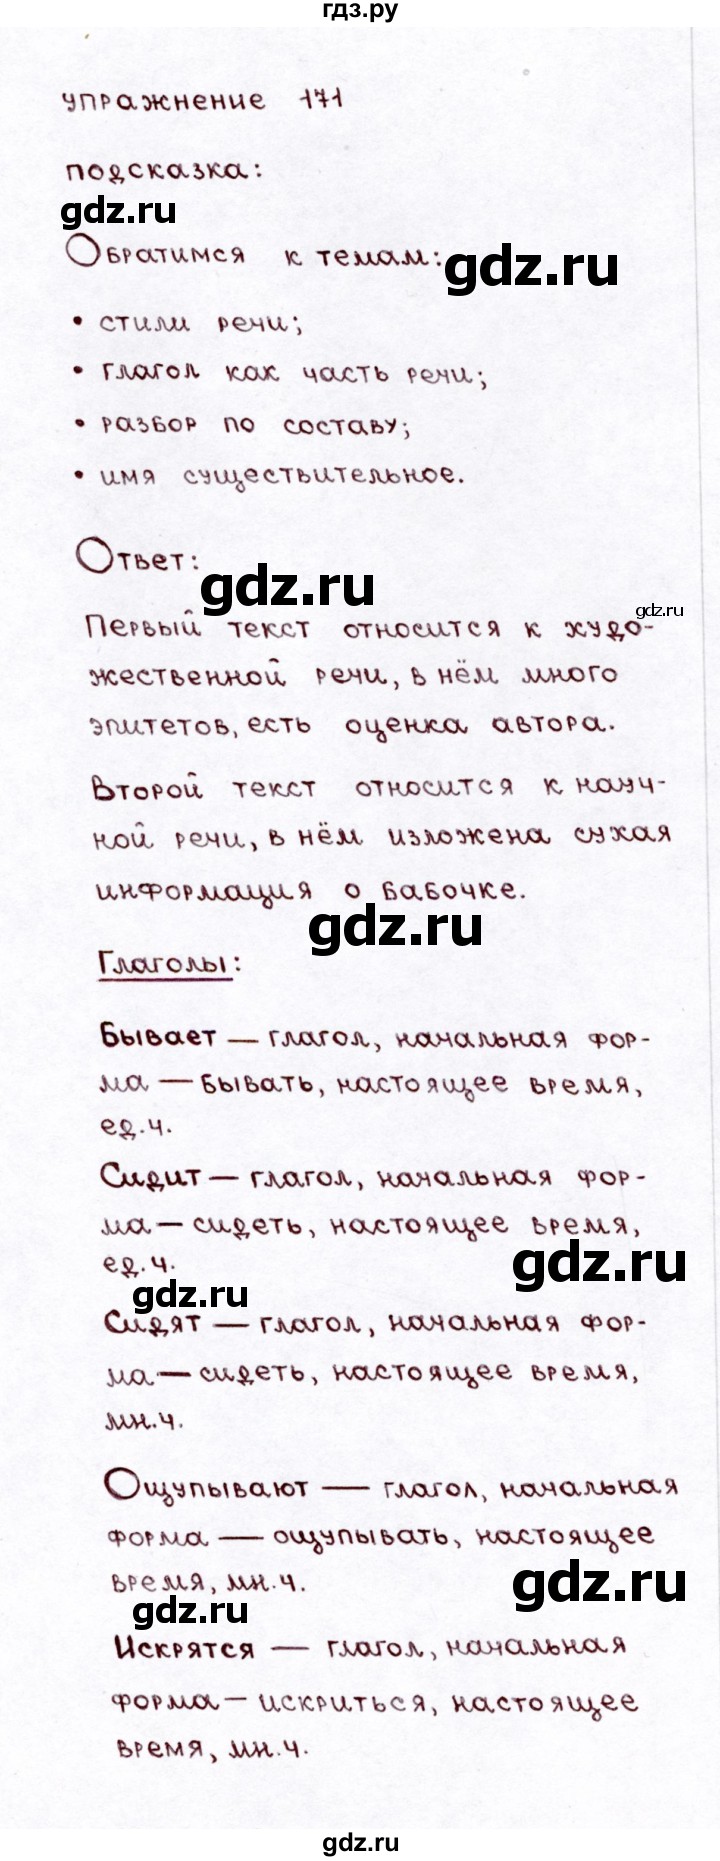 гдз.ру
упражнение 171
подсказка:
gdz.ru
Обратимся к темам:
gdz.ru
• стили речи;
• глагол как часть речи;
• разбор по составу;
• имя существительное.
Ответ:
gdz.ru
gdz.ru
Первый текст относится к худо-
жественной речи, в нём много
эпитетов, есть оценка автора.
Второй текст относится к науч-
ной речи, в нём изложена сухая
информация о бабочке.
gdz.ru
Глаголы:
Бывает — глагол, начальная фор-
ма — бывать, настоящее время,
ед.ч.
Сидит — глагол, начальная фор-
ма — сидеть, настоящее время,
ед.ч.
gdz.ru
gdz.ru
Сидят — глагол, начальная фор-
ма — сидеть, настоящее время,
мн.ч.
Ощупывают — глагол, начальная
форма — ощупывать, настоящее
время, мн.ч.
gdz.ru
gdz.ru
Искрятся — глагол, начальная
форма — искриться, настоящее
время, мн.ч.
gdz.ru